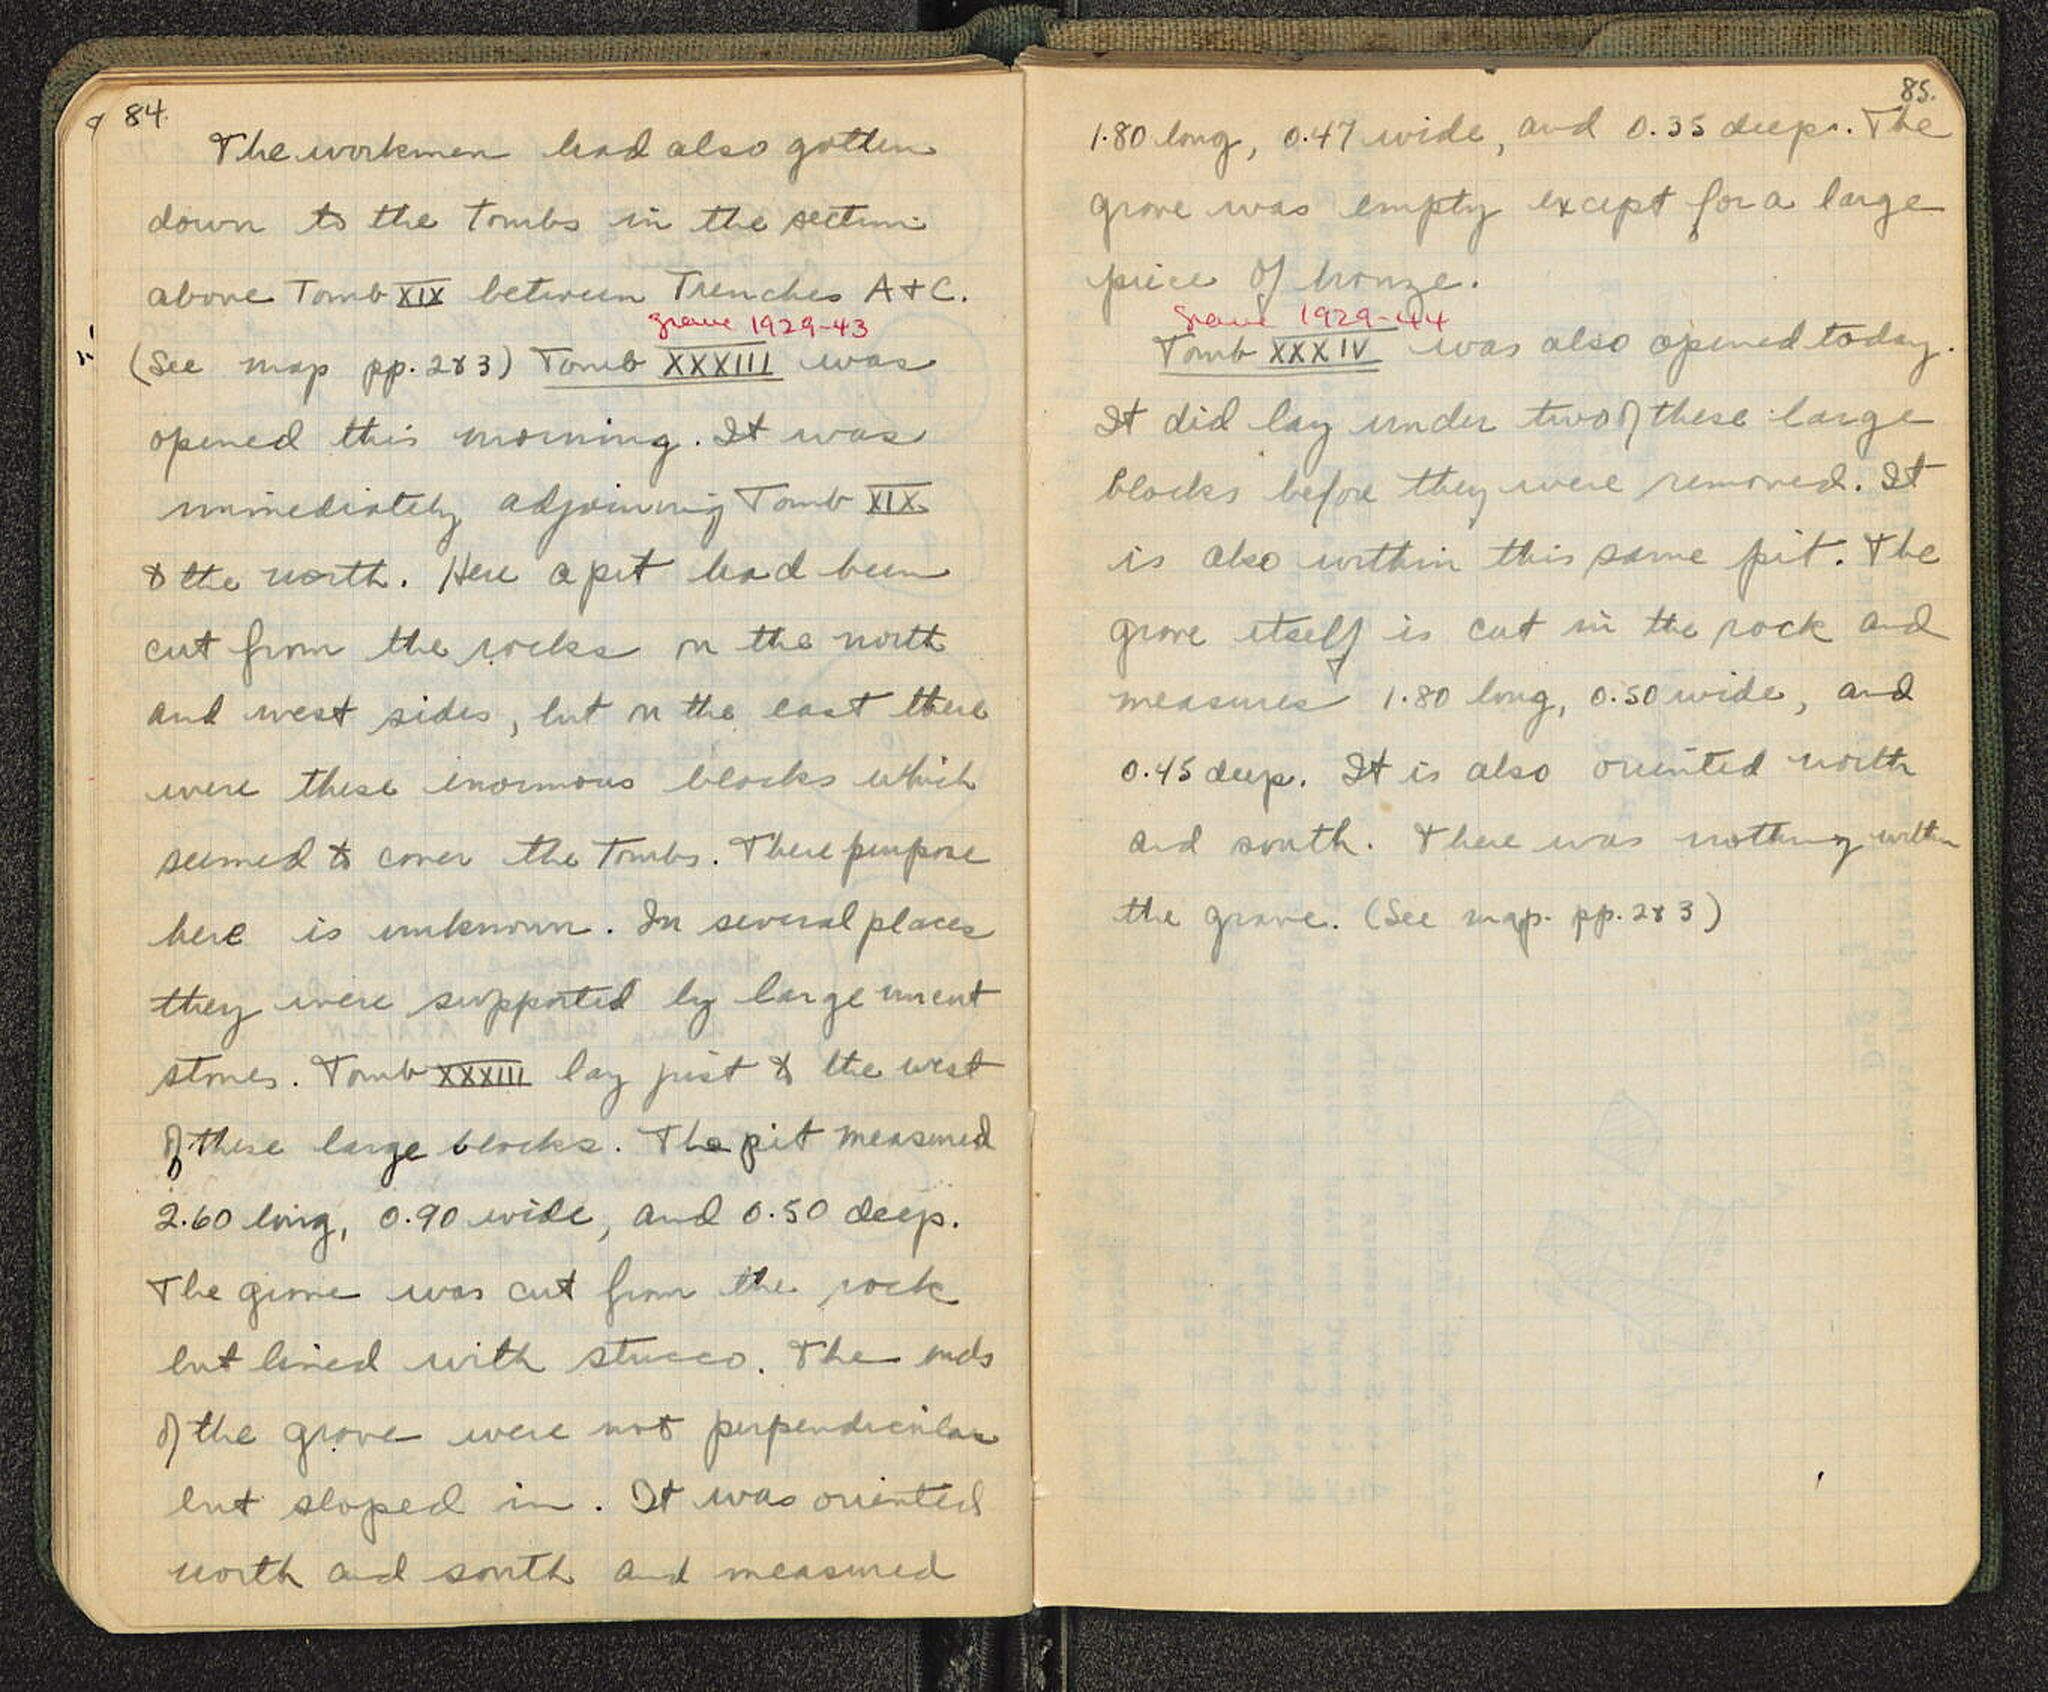 84.
The workmen had also gotten
down to the tombs in the section
above Tomb XIX between Trenches A + C.
grave 1929-43
(See map pp. 2 & 3) Tomb XXXIII was
opened this morning. It was
immediately adjoining Tomb XIX
to the north. Here a pit had been
cut from the rocks on the north
and west sides, but on the east there
were these enormous blocks which
seemed to cover the tombs. There purpose
here is unknown. In several places
they were supported by large uncut
stones. Tomb XXXIII lay just to the west
of these large blocks. The pit measured
2.60 long, 0.90 wide, and 0.50 deep.
The grave was cut from the rock
but lined with stucco. The ends
of the grave were not perpendicular
but sloped in. It was oriented
north and south and measured
85.
1.80 long, 0.47 wide, and 0.35 deep. The
grave was empty except for a large
piece of bronze.
grave 1929-44
Tomb XXXIV was also opened today.
It did lay under two of these large
blocks before they were removed. It
is also within this same pit. The
grave itself is cut in the rock and
measures 1.80 long, 0.50 wide, and
0.45 deep. It is also oriented north
and south. There was nothing within
the grave. (See map. pp. 2 & 3)